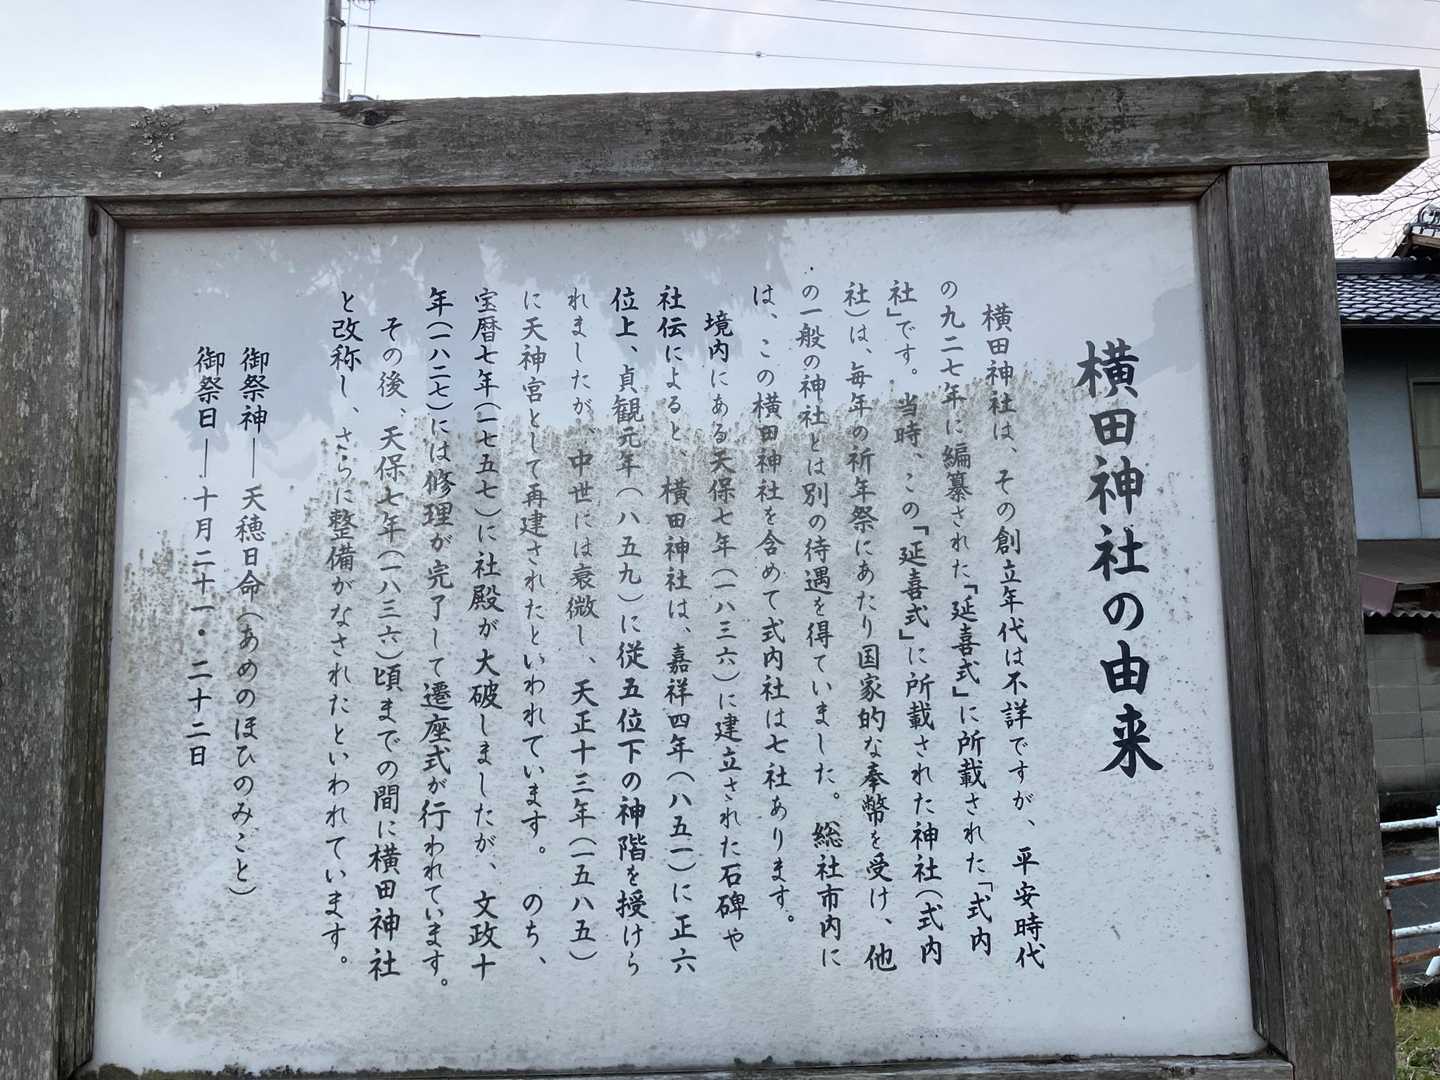 横田神社の由来
横田神社は、その創立年代は不詳ですが、平安時代
の九二七年に編纂された「延喜式」に所載された「式内
社」です。当時、この「延喜式」に所載された神社(式内
社)は、毎年の祈年祭にあたり国家的な奉幣を受け、他
の一般の神社とは別の待遇を得ていました。総社市内に
は、この横田神社を含めて式内社は七社あります。
境内にある天保七年(一八三六)に建立された石碑や
社伝によると、横田神社は、嘉祥四年(八五一)に正六
位上、貞観元年(八五九)に従五位下の神階を授けら
れましたが、中世には衰微し、天正十三年(一五八五)
に天神宮として再建されたといわれています。のち、
宝暦七年(一七五七)に社殿が大破しましたが、文政十
年(一八二七)には修理が完了して遷座式が行われています。
その後、天保七年(一八三六)頃までの間に横田神社
と改称し、さらに整備がなされたといわれています。
御祭神―天穂日命(あめのほひのみこと)
御祭日―十月二十一・二十二日